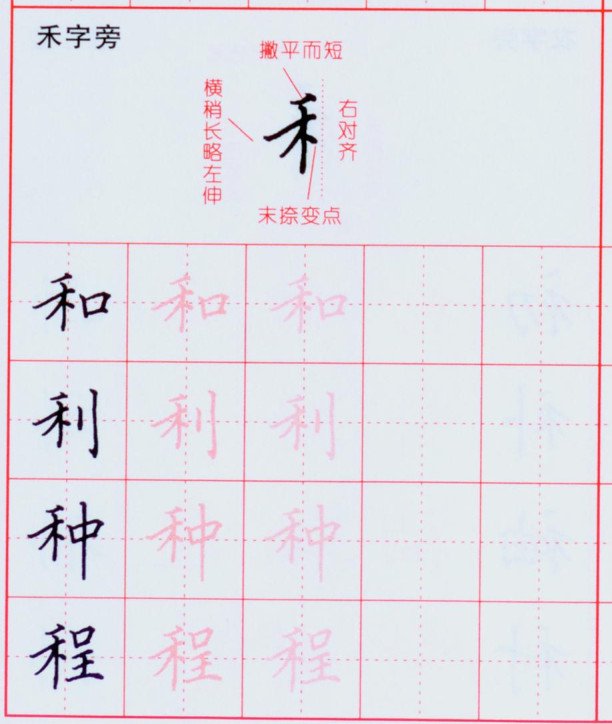 禾字旁
撇平而短
横稍长略左伸
禾
右对齐
末捺变点
和 和 和
利 利 利
种 种 种
程 程 程